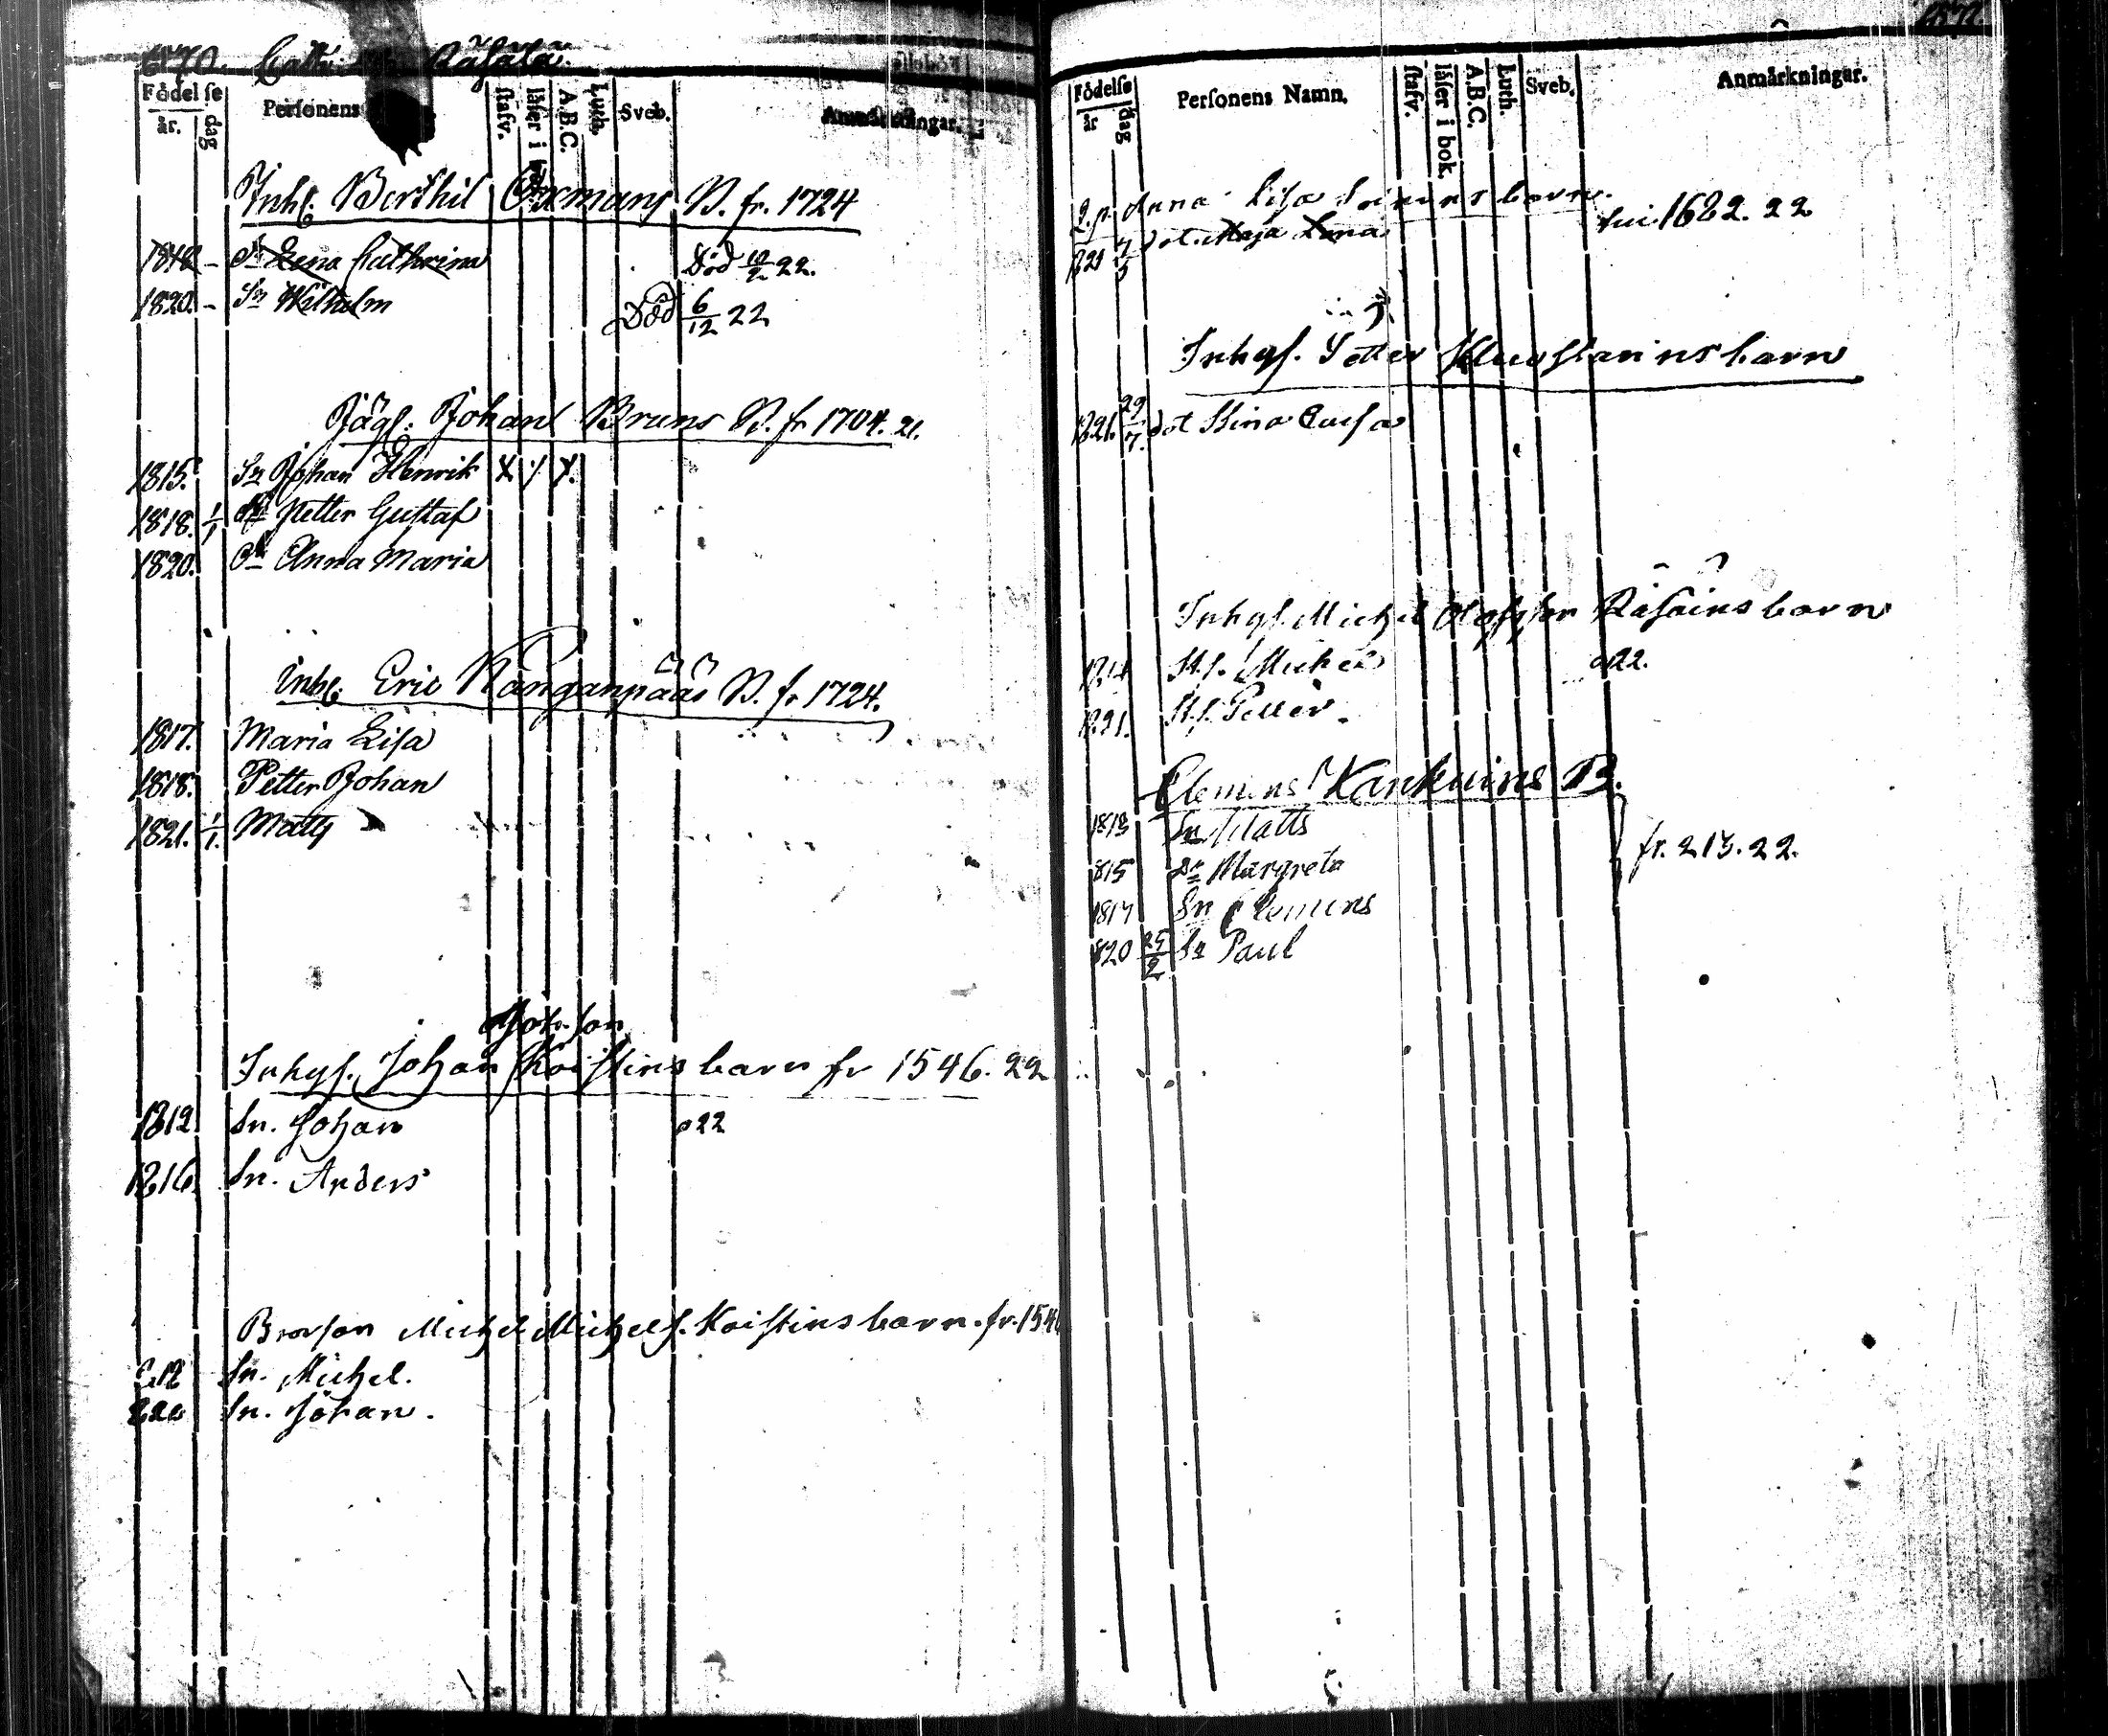 1570. Råsälä.
Födelse
år. dag Personens stafv. läser i bok A.B.C. Luth. Sveb. Anmärkningar.
Inh. Berthil Oxmans B. fr. 1724
1818 - Dr Lena Cathrina Död 10/2 22.
1820. - Sn Wilhelm Död 6/12 22
Johan Bruns B. fr 1704. 21.
1815. Sn Johan Henrik x / x.
1818. 1/1 Sn Petter Gustaf
1820. Dr Anna Maria
Inh. Eric Kånganpääs B. fr 1724.
1817. Maria Lisa
1818. Petter Johan
1821. 1/1. Matts
Inhys. Johan Koistins barn fr 1546. 22
1812 Sn. Johan 22
1816. Sn. Anders
Brorson Michel Michels. Koistins barn. fr. 154
812 Sn. Michel.
820 Sn. Johan.
Födelse
år dag Personens Namn. stafv. läser i bok. A.B.C. Luth. Sveb. Anmärkningar.
Anna Lisa barn.
821 7/5 dot. Maja Lena 1682. 22
Inhys. Petter barn
1821. 29/7. dot Stina Caisa
Inhys. Michel Olofsson Råsäins barn
1814 St.s. Michel 22.
1821. St.s. Petter.
Clemens Kankuins B.
1813 Sn Matts
815 Dr Margreta fr. 213. 22.
1817 Sn Clemens
820 25/2 Sn Paul